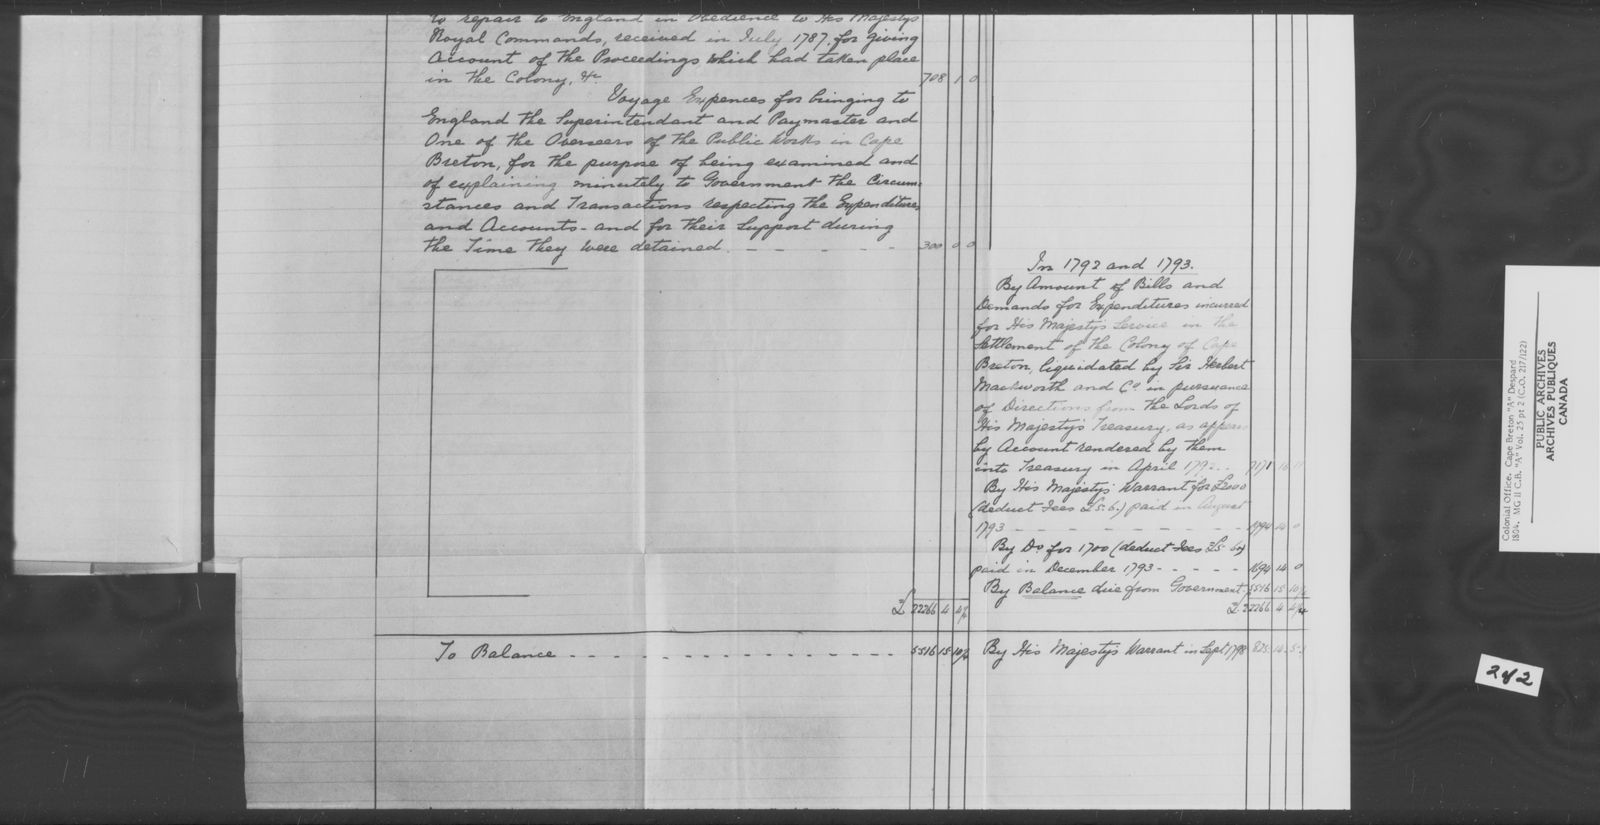 to repair to England in Obedience to His Majestys
Royal Commands, received in July 1787, for giving
Account of the Proceedings which had taken place
in the Colony, &c 708 1 0
Voyage Expences for bringing to
England the Superintendant and Paymaster and
One of the Overseers of the Public Works in Cape
Breton, for the purpose of being examined and
of explaining minutely to Government the Circum=
stances and Transactions respecting the Expenditures
and Accounts - and for their Support during
the Time they were detained - - - - - - 300 0 0
£ 22266 4 4¾
To Balance - - - - - - - - - - - - - - - 5516 15 10¾
In 1792 and 1793.
By Amount of Bills and
Demands for Expenditures incurred
for His Majestys Service in the
Settlement of the Colony of Cape
Breton, liquidated by Sir Herbert
Mackworth and Co in pursuance
of Directions from the Lords of
His Majesty's Treasury, as appears
by Account rendered by them
into Treasury in April 1792 - - 7171 16 11
By His Majesty's Warrant for £2000
(deduct Fees £5. 6.) paid in August
1793 - - - - - - - - - - 14 0
By Do for 1700 (deduct Fees £5 6)
paid in December 1793 - - - - - 1694 14 0
By Balance due from Government 5516 15 10¾
£ 22266 4 4¾
By His Majestys Warrant in Sept 1798 825 14 5
Colonial Office. Cape Breton "A" Despard
1804. MG 11 C.B. "A" Vol. 25 pt 2 (C.O. 217/122)
PUBLIC ARCHIVES
ARCHIVES PUBLIQUES
CANADA
2 of 2